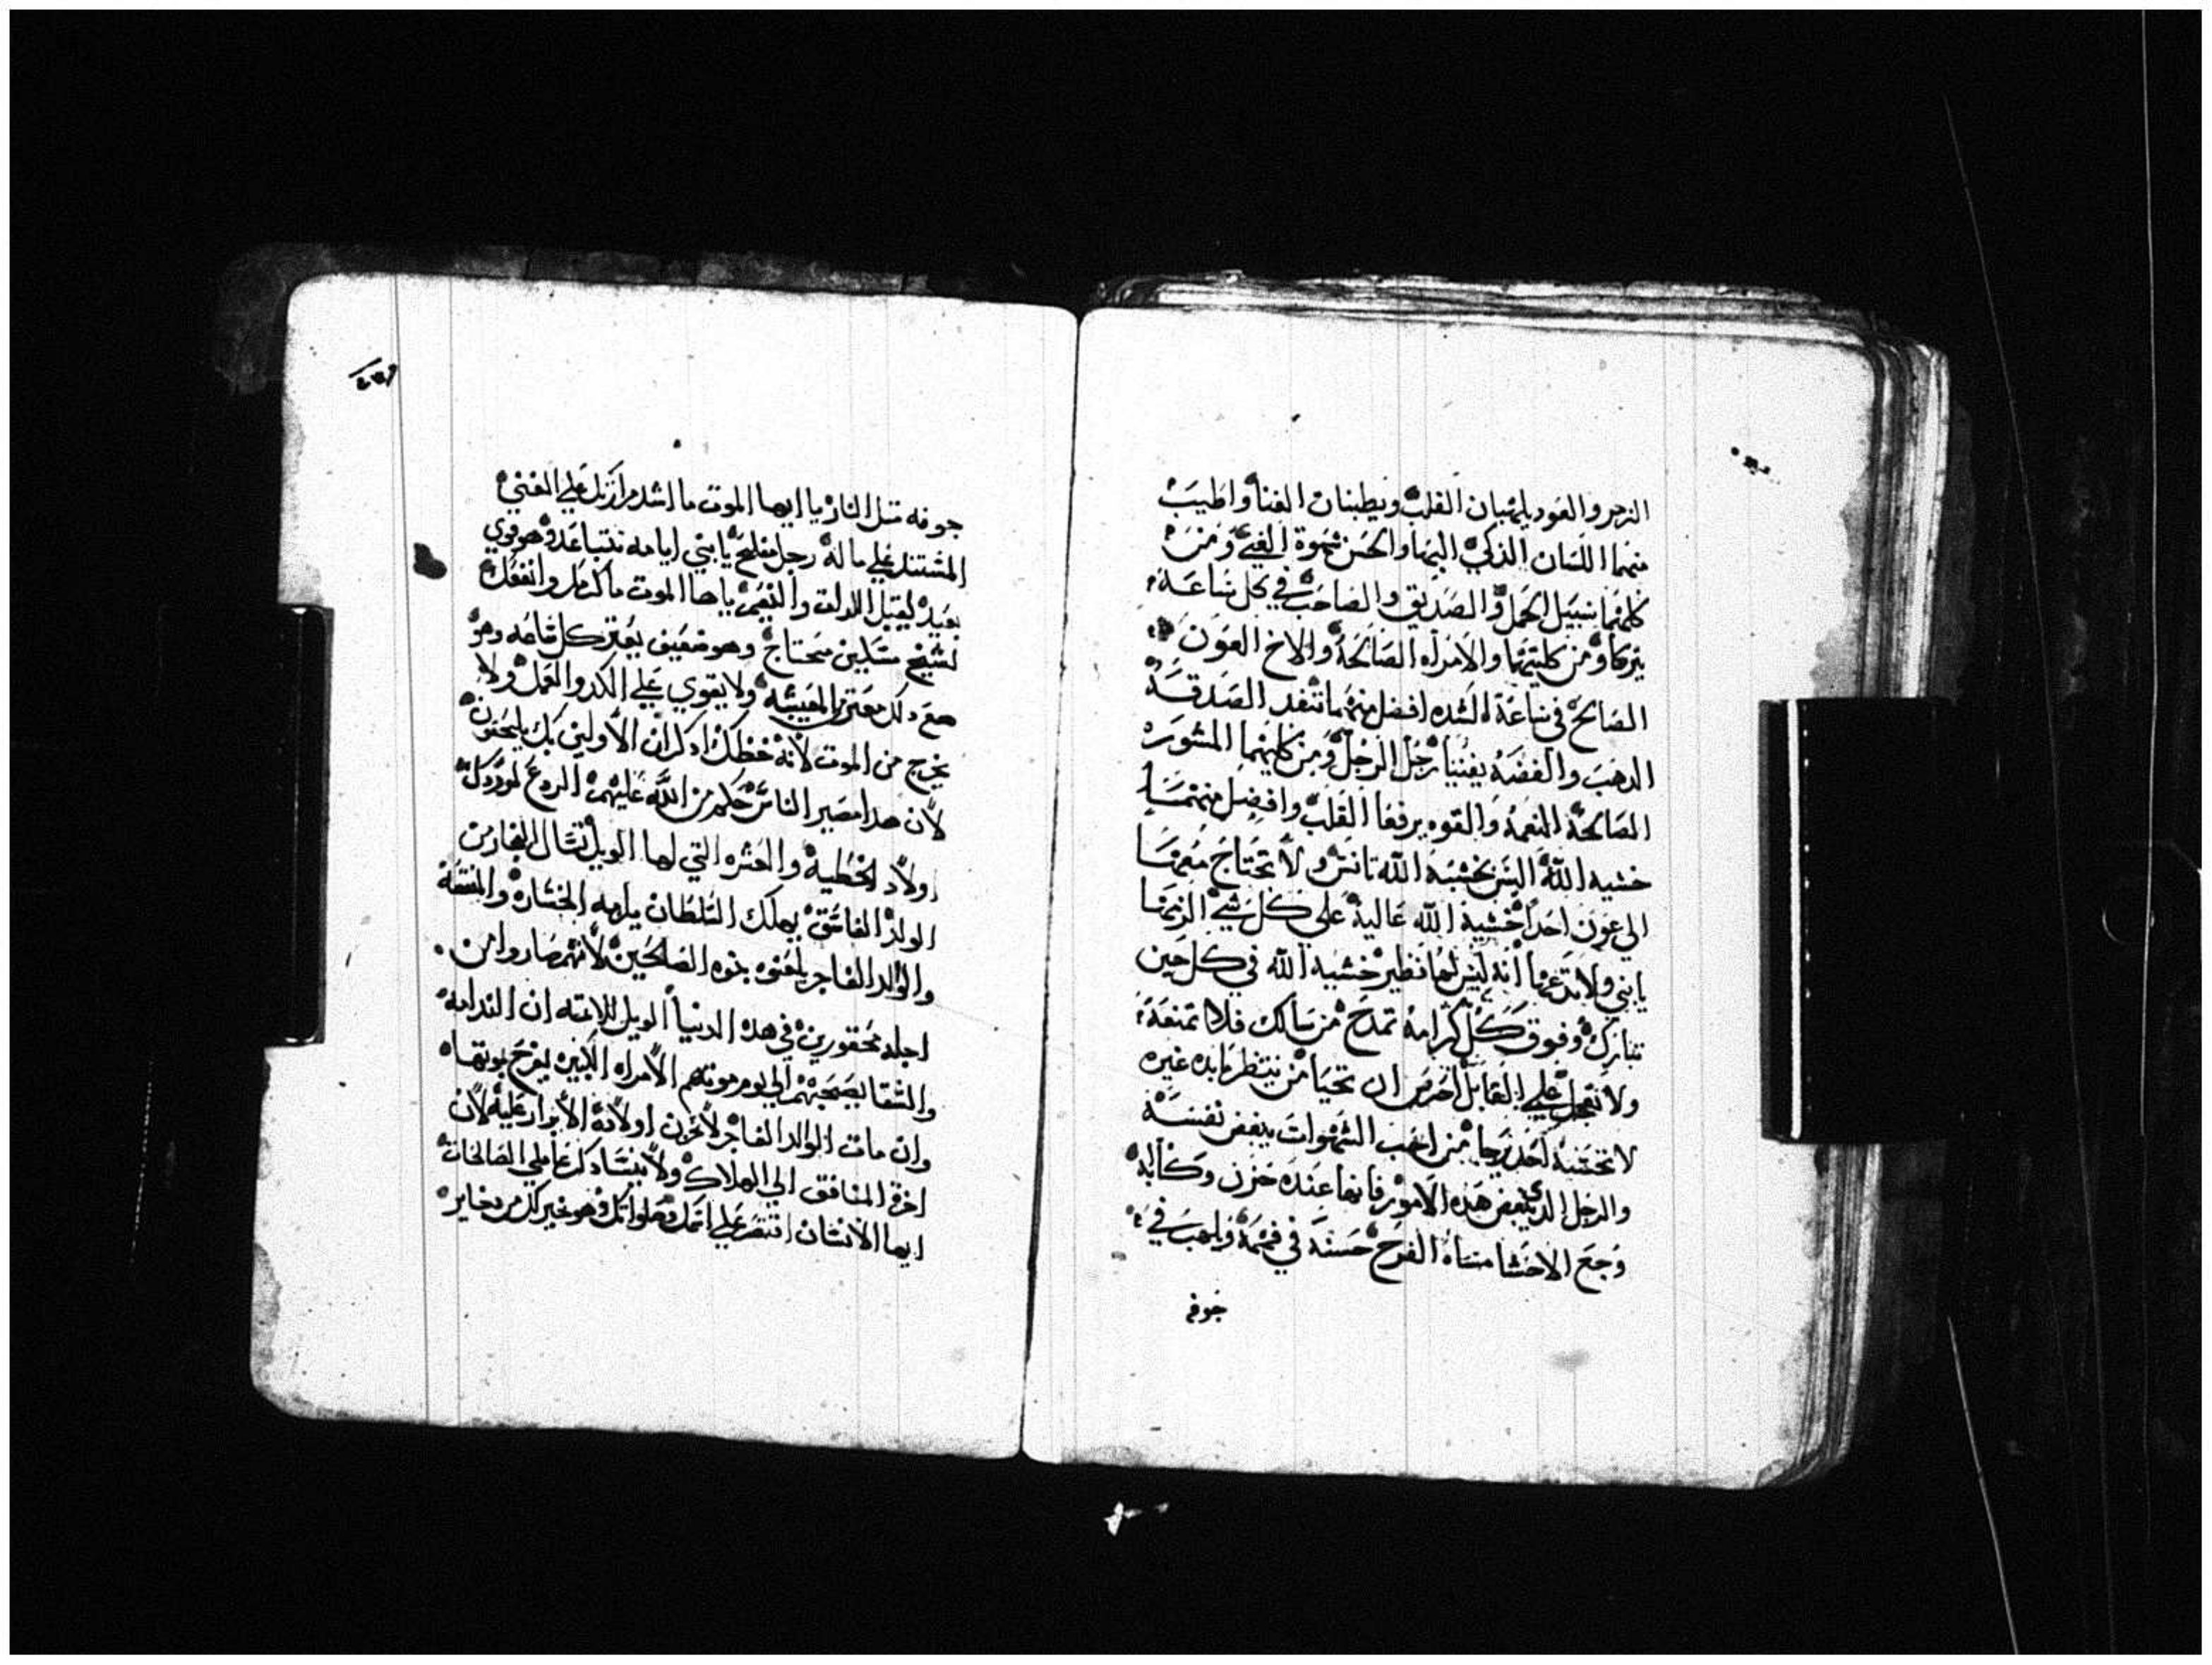 الزمر والعود يلهبان القلب ويطبنان الغنا واطيب
منهما اللسان الذكي البها والحسن شهوة العين ومن
كلتهما سبيل الحمل والصديق والصاحب في كل ساعه
يتركا ومن كليتهما والامراه الصالحه والاخ العون
الصالح في ساعة الشده افضل منهما تنفد الصدقه
الدهب والفضه يفنيا رجل الرجل ومن كليهما المشوره
الصالحه النعمه والقوه يرفعا القلب وافضل منهما
خشيه الله اليس بخشيه الله تانس ولا تحتاج معها
الي عون احد خشية الله عالية علي كل شي الزمها
يا بني ولا تدعها انه ليس لها نظير خشيه الله في كل حين
تبارك وفوق كل كرامه تمدح من سالك فلا تمنعه
ولا تتجمل علي القابل احرص ان تحيا من ينتظر مايده غيره
لا تحسبه احد رجا من احب الشهوات يبغض نفسه
والرجل الدي يبغض هذه الامور فانها عنده حزن وكابه
وجع الاحشا مساه الفرح حسنه في فمه ويلهب في
جوفه
جوفه متل النار يا ايها الموت ما اشد مرارتك علي الغني
المستند علي ماله رجل مفلح يا بني ايامه تتباعد وهو قوي
بعيد ليقبل اللدات والنعم ياها الموت ما اكرمك وانفعك
لشيخ مسكين محتاج وهو ضعيف يعتر كل ساعه وهو
مع دلك معتر المعيشه ولا يقوي علي الكد والعمل ولا
يخرج من الموت لانه حظك ادكر ان الاولين بك يلحقون
لان هدا مصير الناس حكم من الله عليهم الردع
اولاد الخطية والعشره التي لها الويل تشال
الولد الفاسق يهلك السلطان يلهه الخساره والمنقة
والوالد الفاجر يلعنوه بنوه الصالحين لانهم صاروا من
اجله محقورين في هذه الدنيا الويل للاعته ان الندامه
والشقا يصحبهم الي يوم موتهم الامراه الكبيره يفرح بموتها
وان مات الوالد الفاجر لا تحزن اولاده الابرار عليه لان
اخرة المنافق الي الهلاك ولا ينسا دكر عاملي الصالحات
ايها الانسان اقتصر علي وهو خير لك من دخاير